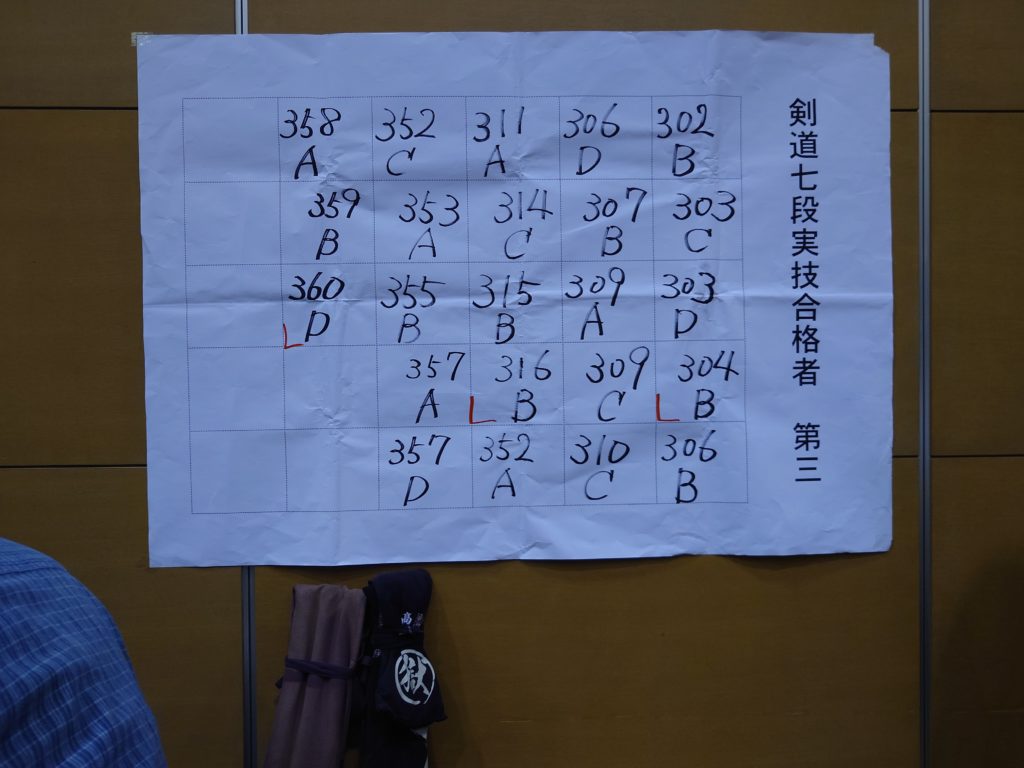 剣道七段実技合格者 第三
302
B
303
C
303
D
304
B
306
B
306
D
307
B
309
A
309
C
310
C
311
A
314
C
315
B
316
B
352
A
352
C
353
A
355
B
357
A
357
D
358
A
359
B
360
D
高
獄